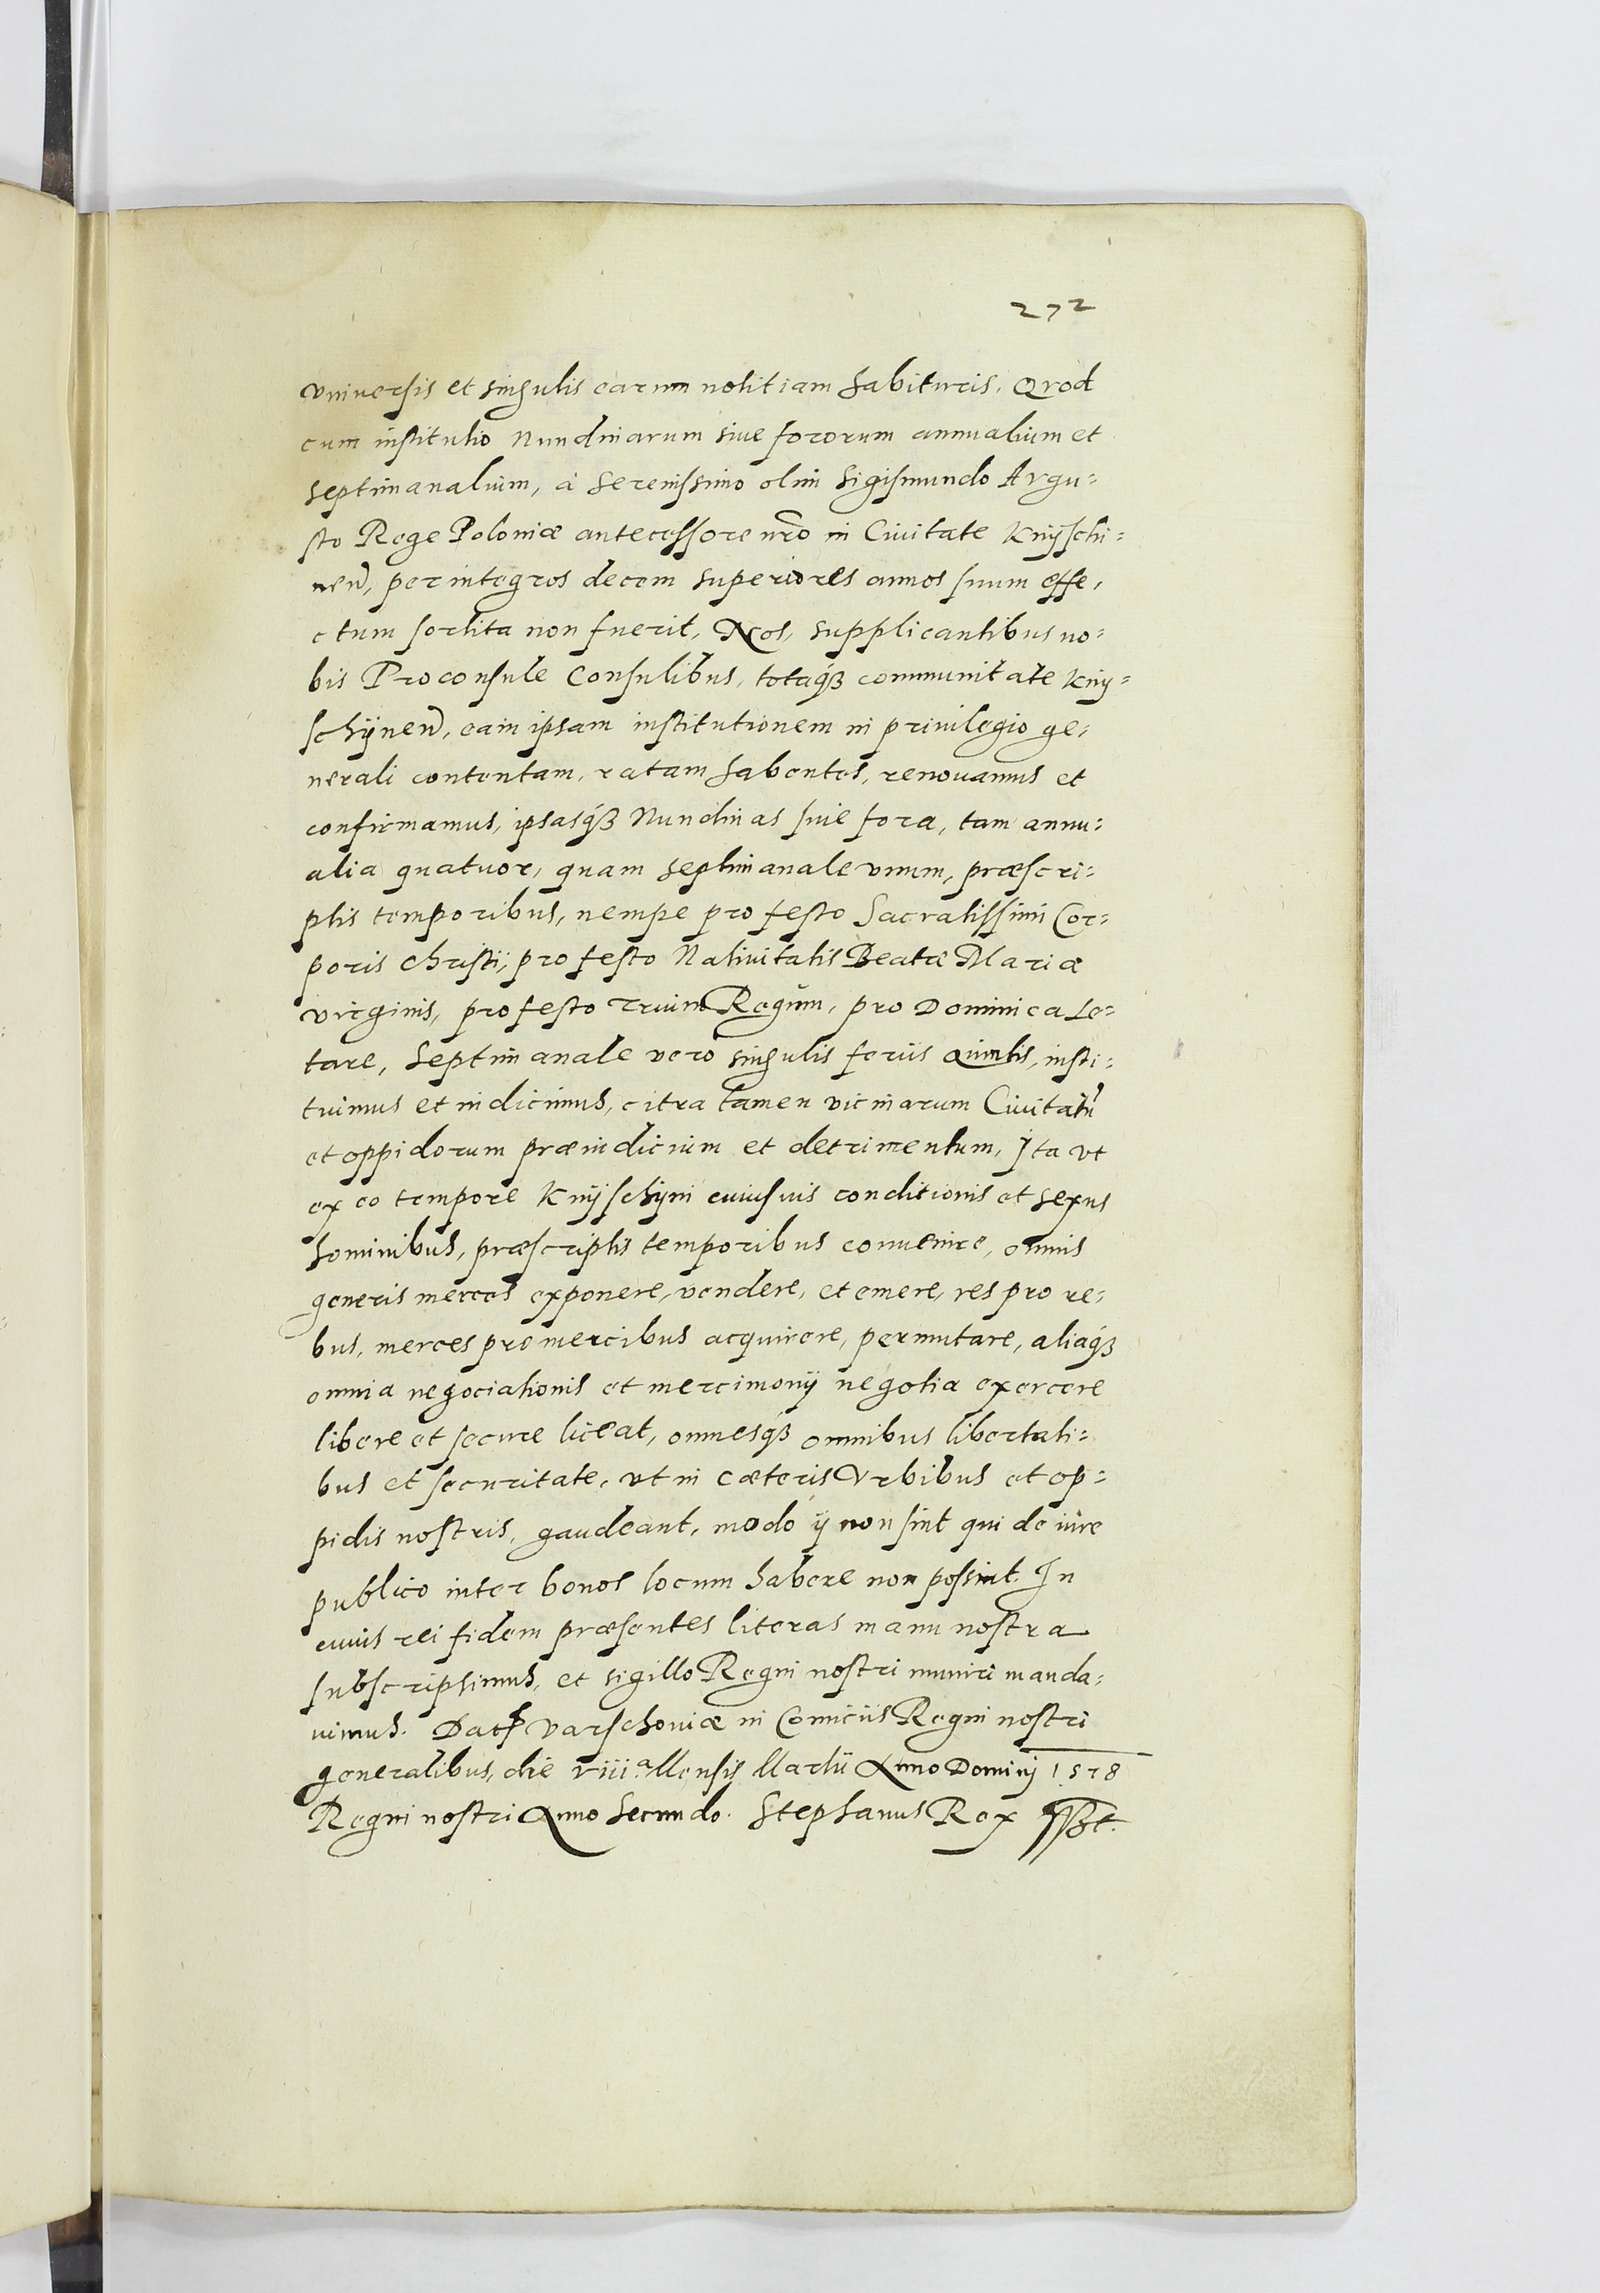 272
vniuersis et singulis earum notitiam habituris. Quod
cum institutio Nundinarum siue fororum annualium et
septimanalium, à Serenissimo olim Sigismundo Augu-
sto Rege Poloniæ antecessore nr̃o in Ciuitate Knÿschi-
nen̄, per integros decem superiores annos suum effe-
ctum sortita non fuerit, Nos, supplicantibus no-
bis Proconsule Consulibus, totaq́ꝫ communitate Knÿ-
schÿnen̄, eam ipsam institutionem in priuilegio ge-
nerali contentam, ratam habentes, renouamus et
confirmamus, ipsasq́ꝫ Nundinas siue fora, tam annu-
alia quatuor, quam septimanale vnum, præscri-
ptis temporibus, nempe pro festo Sacratissimi Cor-
poris Christi, pro festo Natiuitatis Beatæ Mariæ
virginis, pro festo Trium Regum, pro Dominica Le-
tare, Septimanale vero singulis feriis quintis, insti-
tuimus et indicimus, citra tamen vicinarum Ciuitatũ
et oppidorum præiudicium et detrimentum, Ita vt
ex eo tempore Knÿschÿni cuiusuis conditionis et sexus
hominibus, præscriptis temporibus conuenire, omnis
generis merces exponere, vendere, et emere, res pro re-
bus, merces pro mercibus acquirere, permutare, aliaq́ꝫ
omnia negociationis et mercimonÿ negotia exercere
libere et secure liceat, omnesq́ꝫ omnibus libertati-
bus et securitate, vt in cæteris Vrbibus et op-
pidis nostris, gaudeant, modo ÿ non sint qui de iure
publico inter bonos locum habere non possint. In
cuius rei fidem præsentes literas manu nostra
subscripsimus, et sigillo Regni nostri muniri manda-
uimus. Datꝭ Varschouiæ in Comitiis Regni nostri
generalibus, die viii.ᵃ Mensis Martii Anno Domini 1578
Regni nostri Anno Secundo. Stephanus Rex